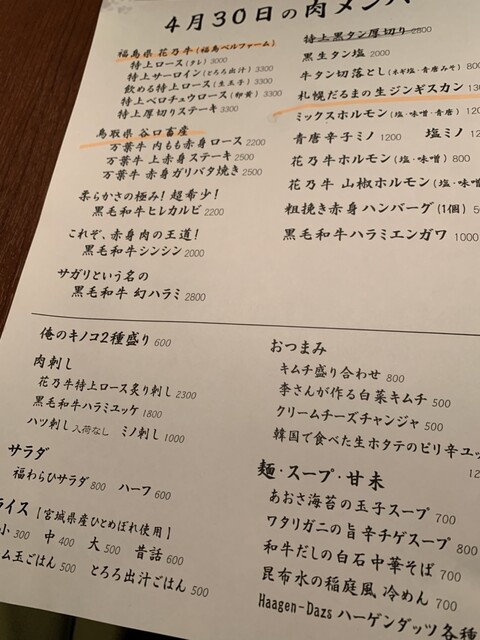 4月30日の肉メンバ
福島県 花乃牛(福島ベルファーム)
特上ロース(タレ) 3000
特上サーロイン(とろろ出汁) 3300
飲める特上ロース(生玉子) 3300
特上ペロチュウロース(卵黄) 3300
特上厚切りステーキ 3300
鳥取県 谷口畜産
万葉牛 内もも赤身ロース 2200
万葉牛 上赤身ステーキ 2500
万葉牛 赤身ガリバタ焼き 2500
柔らかさの極み!超希少!
黒毛和牛ヒレカルビ 2200
これぞ、赤身肉の王道!
黒毛和牛シンシン 2000
サガリという名の
黒毛和牛 幻ハラミ 2800
特上黒タン厚切り 2800
黒生タン塩 2000
牛タン切落とし(ネギ塩・青唐みそ) 800
札幌だるまの生ジンギスカン 130
ミックスホルモン(塩・味噌・青唐) 12
青唐辛子ミノ 1200 塩ミノ 12
花乃牛ホルモン(塩・味噌) 800
花乃牛 山椒ホルモン(塩・味噌
粗挽き赤身ハンバーグ(1個) 50
黒毛和牛ハラミエンガワ 1000
俺のキノコ2種盛り 600
肉刺し
花乃牛特上ロース炙り刺し 2300
黒毛和牛ハラミユッケ 1800
ハツ刺し入荷なし ミノ刺し 1000
サラダ
福わらひサラダ 800 ハーフ 600
ライス【宮城県産ひとめぼれ使用】
小 300 中 400 大 500 昔話 600
ム玉ごはん 500 とろろ出汁ごはん 500
おつまみ
キムチ盛り合わせ 800
李さんが作る白菜キムチ 500
クリームチーズチャンジャ 500
韓国で食べた生ホタテのピリ辛ユッ
12
麺・スープ・甘味
あおさ海苔の玉子スープ 700
ワタリガニの旨辛チゲスープ 800
和牛だしの白石中華そば 700
昆布水の稲庭風 冷めん 700
Haagen-Dazs ハーゲンダッツ各種